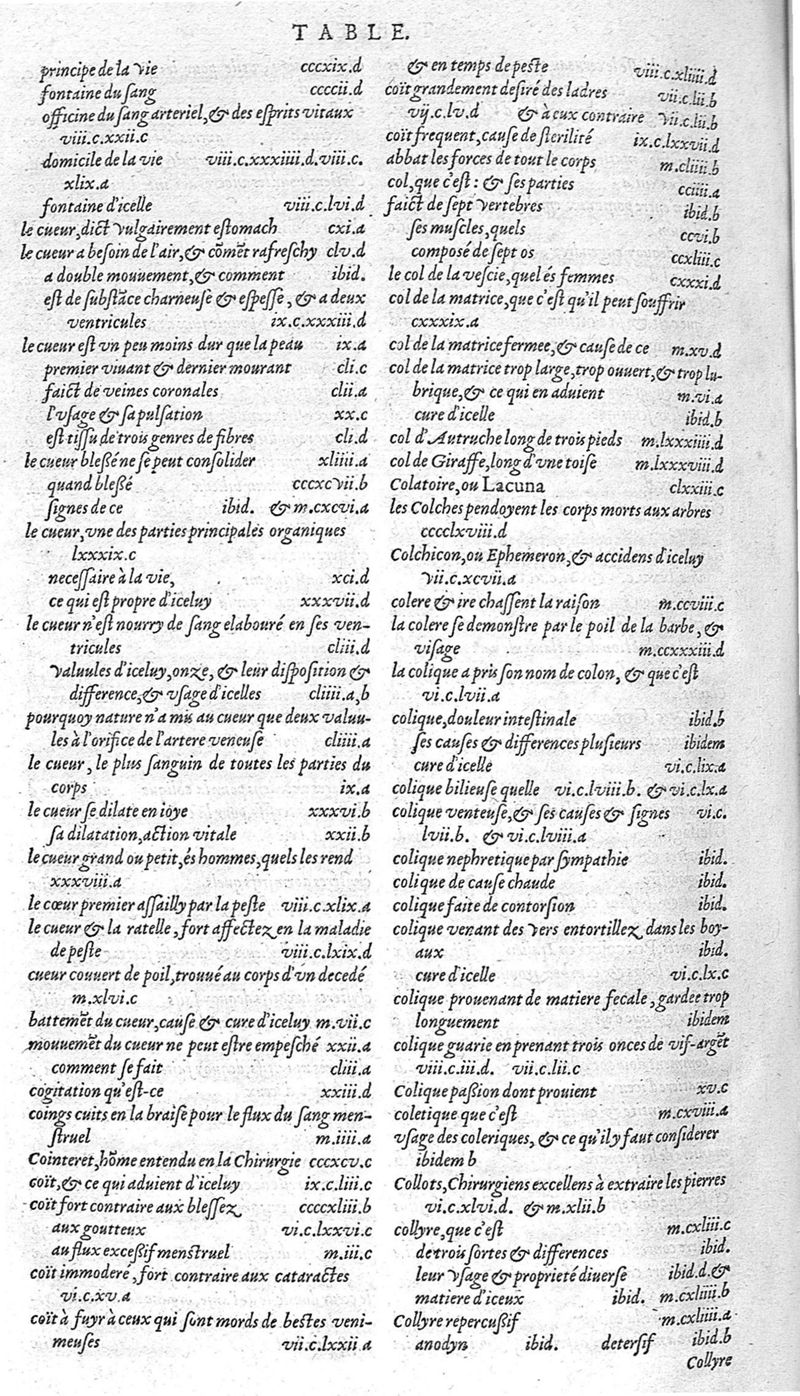 TABLE.
principe de la vie cccxix.d
fontaine du sang ccccii.d
officine du sang arteriel, & des esprits vitaux
viii.c.xxii.c
domicile de la vie viii.c.xxxiiii.d.viii.c.
xlix.a
fontaine d'icelle viii.c.lvi.d
le cueur, dict vulgairement estomach cxi.a
le cueur a besoin de l'air, & cõmẽt rafreschy clv.d
a double mouuement, & comment ibid.
est de substãce charneuse & espesse, & a deux
ventricules ix.c.xxxiii.d
le cueur est vn peu moins dur que la peau ix.a
premier viuant & dernier mourant cli.c
faict de veines coronales clii.a
l'vsage & sa pulsation xx.c
est tissu de trois genres de fibres cli.d
le cueur blessé ne se peut consolider xliiii.a
quand blessé cccxcvii.b
signes de ce ibid. & m.cxcvi.a
le cueur, vne des parties principales organiques
lxxxix.c
necessaire à la vie, xci.d
ce qui est propre d'iceluy xxxvii.d
le cueur n'est nourry de sang elabouré en ses ven-
tricules cliii.d
valuules d'iceluy, onze, & leur disposition &
difference, & vsage d'icelles cliiii.a,b
pourquoy nature n'a mis au cueur que deux valuu-
les à l'orifice de l'artere veneuse cliiii.a
le cueur, le plus sanguin de toutes les parties du
corps ix.a
le cueur se dilate en ioye xxxvi.b
sa dilatation, action vitale xxii.b
le cueur grand ou petit, és hommes, quels les rend
xxxviii.a
le cœur premier assailly par la peste viii.c.xlix.a
le cueur & la ratelle, fort affectez en la maladie
de peste viii.c.lxix.d
cueur couuert de poil, trouué au corps d'vn decedé
m.xlvi.c
battemẽt du cueur, cause & cure d'iceluy m.vii.c
mouuemẽt du cueur ne peut estre empesché xxii.a
comment se fait cliii.a
cogitation qu'est-ce xxiii.d
coings cuits en la braise pour le flux du sang men-
struel m.iiii.a
Cointeret, hõme entendu en la Chirurgie cccxcv.c
coït, & ce qui aduient d'iceluy ix.c.liii.c
coït fort contraire aux blessez ccccxliii.b
aux goutteux vi.c.lxxvi.c
au flux excessif menstruel m.iii.c
coït immoderé, fort contraire aux cataractes
vi.c.xv.a
coït à fuyr à ceux qui sont mords de bestes veni-
meuses vii.c.lxxii.a
& en temps de peste viii.c.xliiii.d
coït grandement desiré des ladres vii.c.lii.b
vij.c.lv.d & à eux contraire vii.c.lii.b
coït frequent, cause de sterilité ix.c.lxxvii.d
abbat les forces de tout le corps m.cliiii.b
col, que c'est : & ses parties cciiii.a
faict de sept vertebres ibid.b
ses muscles, quels ccvi.b
composé de sept os ccxliii.c
le col de la vescie, quel és femmes cxxxi.d
col de la matrice, que c'est qu'il peut souffrir
cxxxix.a
col de la matrice fermee, & cause de ce m.xv.d
col de la matrice trop large, trop ouuert, & trop lu-
brique, & ce qui en aduient m.vi.a
cure d'icelle ibid.b
col d'Autruche long de trois pieds m.lxxxiiii.d
col de Giraffe, long d'vne toise m.lxxxviii.d
Colatoire, ou Lacuna clxxiii.c
les Colches pendoyent les corps morts aux arbres
cccclxviii.d
Colchicon, ou Ephemeron, & accidens d'iceluy
vii.c.xcvii.a
colere & ire chassent la raison m.ccviii.c
la colere se demonstre par le poil de la barbe, &
visage m.ccxxxiii.d
la colique a pris son nom de colon, & que c'est
vi.c.lvii.a
colique, douleur intestinale ibid.b
ses causes & differences plusieurs ibidem
cure d'icelle vi.c.lix.a
colique bilieuse quelle vi.c.lviii.b. & vi.c.lx.a
colique venteuse, & ses causes & signes vi.c.
lvii.b. & vi.c.lviii.a
colique nephretique par sympathie ibid.
colique de cause chaude ibid.
colique faite de contorsion ibid.
colique venant des vers entortillez dans les boy-
aux ibid.
cure d'icelle vi.c.lx.c
colique prouenant de matiere fecale, gardee trop
longuement ibidem
colique guarie en prenant trois onces de vif-argẽt
viii.c.iii.d. vii.c.lii.c
Colique passion dont prouient xv.c
coletique que c'est m.cxviii.a
vsage des coleriques, & ce qu'il y faut considerer
ibidem b
Collots, Chirurgiens excellens à extraire les pierres
vi.c.xlvi.d. & m.xlii.b
collyre, que c'est m.cxliii.c
de trois sortes & differences ibid.
leur vsage & proprieté diuerse ibid.d.&
matiere d'iceux ibid. m.cxliiii.b
Collyre repercussif m.cxliiii.a
anodyn ibid. detersif ibid.b
Collyre